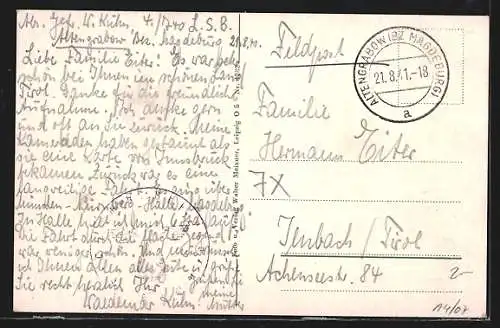 Abs. Gefr. W. Kühn. 4./740 L.S.B.
Altengrabow Bez. Magdeburg 21.8.41.
Liebe Familie Eiter! Es war sehr
schön bei Ihnen im schönen Land
Tirol. Danke für die freundliche
Aufnahme. Ich denke gern
und oft an Sie zurück. Meine
Kameraden haben gestaunt als
sie eine Karte von Innsbruck
bekamen. Zurück war es eine
langweilige Fahrt. Es ging über
München - Nürnberg - Halle - Magdeburg.
In Halle hatte ich 6 Std.
Die Fahrt durch die flache Gegend
war weniger schön. Und nun wünsche
ich Ihnen allen alles Gute u. grüße
Sie recht herzlich Ihr
Waldemar Kühn. meine Mutter
Feldpost
ALTENGRABOW (BZ MAGDEBURG)
21.8.41.-18
a
Familie
Hermann Eiter
7X
Jenbach / Tirol
Achenseestr. 84
Verlag Walter Meissner, Leipzig O 5
2-